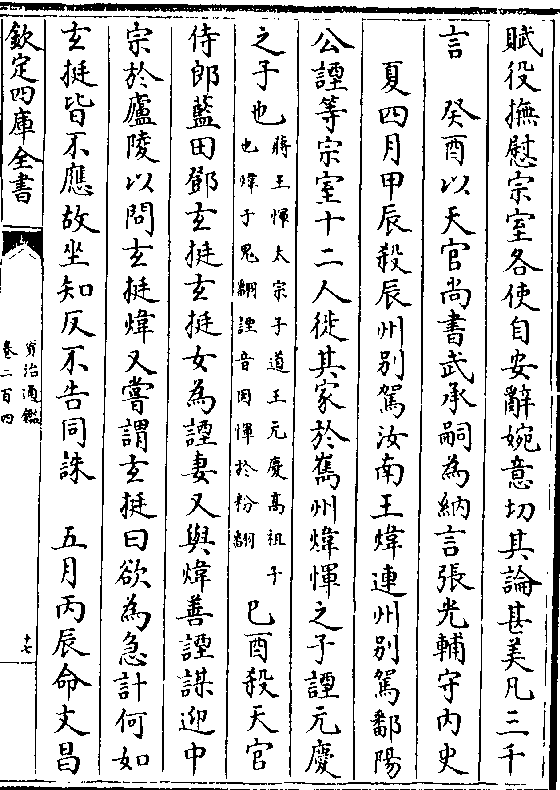 賦役撫慰宗室各使自安辭婉意切其論甚美凡三千
言　癸酉以天官尚書武承嗣為納言張光輔守内史
夏四月甲辰殺辰州别駕汝南王煒連州别駕鄱陽
公諲等宗室十二人徙其家於嶲州煒惲之子諲元慶
之子也
蔣王惲太宗子道王元慶高祖子
也煒于鬼翻諲音因惲於粉翻
己酉殺天官
侍郎藍田鄧玄挺玄挺女為諲妻又與煒善諲謀迎中
宗於廬陵以問玄挺煒又嘗謂玄挺曰欲為急計何如
玄挺皆不應故坐知反不告同誅　五月丙辰命文昌
欽定四庫全書
資治通鑑
卷二百四
十七